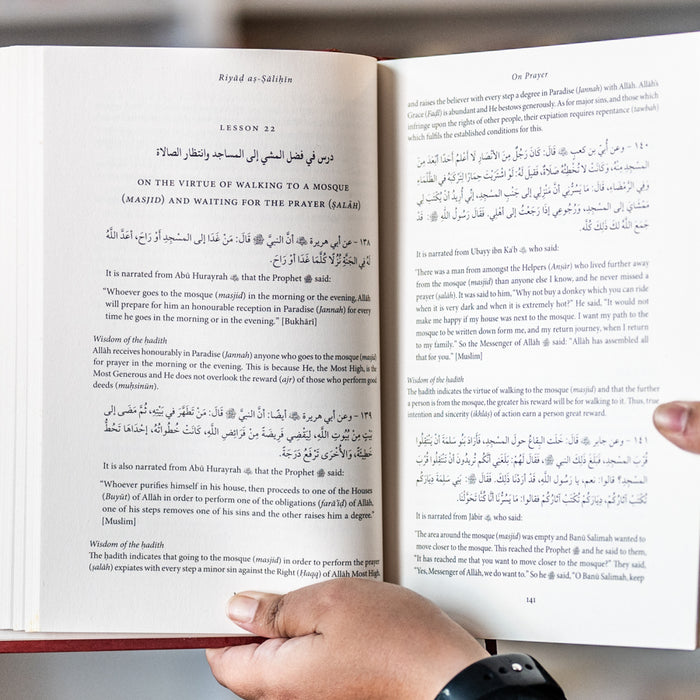 Riyāḍ aṣ-Ṣāliḥīn
LESSON 22
درس في فضل المشي إلى المساجد وانتظار الصلاة
ON THE VIRTUE OF WALKING TO A MOSQUE
(MASJID) AND WAITING FOR THE PRAYER (ṢALĀH)
١٣٨ - عن أبي هريرة ﷺ أنَّ النبيَّ ﷺ قَالَ: مَنْ غَدَا إلى المَسْجِدِ أَوْ رَاحَ، أَعَدَّ اللَّهُ
لَهُ فِي الجَنَّةِ نُزُلًا كُلَّمَا غَدَا أَوْ رَاحَ.
It is narrated from Abū Hurayrah that the Prophet ﷺ said:
“Whoever goes to the mosque (masjid) in the morning or the evening, Allāh
will prepare for him an honourable reception in Paradise (Jannah) for every
time he goes in the morning or in the evening.” [Bukhārī]
Wisdom of the ḥadīth
Allāh receives honourably in Paradise (Jannah) anyone who goes to the mosque (masjid)
for prayer in the morning or evening. This is because He, the Most High, is the
Most Generous and He does not overlook the reward (ajr) of those who perform good
deeds (muḥsinūn).
١٣٩ - وعن أبي هريرة أيضًا: أنَّ النبيَّ ﷺ قَالَ: مَنْ تَطَهَّرَ في بَيْتِهِ، ثُمَّ مَضَى إلى
بَيْتٍ مِنْ بُيُوتِ اللَّهِ، لِيَقْضِيَ فَرِيضَةً مِنْ فَرَائِضِ اللَّهِ، كَانَتْ خُطُوَاتُهُ، إحْدَاهَا تَحُطُّ
خَطِيئَةً، وَالأُخْرَى تَرْفَعُ دَرَجَةً.
It is also narrated from Abū Hurayrah that the Prophet ﷺ said:
“Whoever purifies himself in his house, then proceeds to one of the Houses
(Buyūt) of Allāh in order to perform one of the obligations (farā’iḍ) of Allāh,
one of his steps removes one of his sins and the other raises him a degree.”
[Muslim]
Wisdom of the ḥadīth
The ḥadīth indicates that going to the mosque (masjid) in order to perform the prayer
(ṣalāh) expiates with every step a minor sin against the Right (Ḥaqq) of Allāh Most High,
On Prayer
and raises the believer with every step a degree in Paradise (Jannah) with Allāh. Allāh’s
Grace (Faḍl) is abundant and He bestows generously. As for major sins, and those which
infringe upon the rights of other people, their expiation requires repentance (tawbah)
which fulfils the established conditions for this.
١٤٠ - وعن أُبيّ بن كعبٍ قَالَ: كَانَ رَجُلٌ مِنَ الأنْصَارِ لَا أَعْلَمُ أَحَدًا أَبْعَدَ مِنَ
المَسْجِدِ مِنْهُ، وَكَانَتْ لَا تُخْطِئُهُ صَلَاةٌ، فَقِيلَ لَهُ: لَوِ اشْتَرَيْتَ حِمَارًا لِتَرْكَبَهُ فِي الظَّلْمَاءِ
وَفِي الرَّمْضَاءِ، قَالَ: مَا يَسُرُّنِي أَنَّ مَنْزِلِي إلَى جَنْبِ المَسْجِدِ، إنِّي أُرِيدُ أَنْ يُكْتَبَ لِي
مَمْشَايَ إلى المَسْجِدِ، وَرُجُوعِي إذَا رَجَعْتُ إلى أَهْلِي. فَقَالَ رَسُولُ اللَّهِ ﷺ: قَدْ
جَمَعَ اللَّهُ لَكَ ذَلِكَ كُلَّه.
It is narrated from Ubayy ibn Ka‘b who said:
“There was a man from amongst the Helpers (Anṣār) who lived further away
from the mosque (masjid) than anyone else I know, and he never missed a
prayer (ṣalāh). It was said to him, “Why not buy a donkey which you can ride
when it is very dark and when it is extremely hot?” He said, “It would not
make me happy if my house was next to the mosque. I want my path to the
mosque to be written down form me, and my return journey, when I return
to my family.” So the Messenger of Allāh ﷺ said: “Allāh has assembled all
that for you.” [Muslim]
Wisdom of the ḥadīth
The ḥadīth indicates the virtue of walking to the mosque (masjid) and that the further
a person is from the mosque, the greater his reward will be for walking to it. Thus, true
intention and sincerity (ikhlāṣ) of action earn a person great reward.
١٤١ - وعن جابرٍ قَالَ: خَلَت البِقَاعُ حولَ المَسْجِدِ، فَأَرَادَ بَنُو سَلِمَةَ أَنْ يَنْتَقِلُوا
قُرْبَ المَسْجِدِ، فَبَلَغَ ذَلِكَ النبي ﷺ، فَقَالَ لَهُمْ: بَلَغَنِي أَنَّكُم تُرِيدُونَ أَنْ تَنْتَقِلُوا قُرْبَ
المَسْجِدِ؟ قالوا: نعم، يا رَسُولَ اللَّهِ، قَدْ أَرَدْنَا ذَلِكَ. فَقَالَ ﷺ: بَنِي سَلِمَةَ دِيَارَكُمْ
تُكْتَبْ آثَارُكُمْ، دِيَارَكُمْ تُكْتَبْ آثَارُكُمْ فقالوا: مَا يَسُرُّنَا أَنَّا كُنَّا تَحَوَّلْنَا.
It is narrated from Jābir who said:
“The area around the mosque (masjid) was empty and Banū Salimah wanted to
move closer to the mosque. This reached the Prophet ﷺ and he said to them,
“It has reached me that you want to move closer to the mosque?” They said,
“Yes, Messenger of Allāh, we do want to.” So he ﷺ said, “O Banū Salimah, keep
141